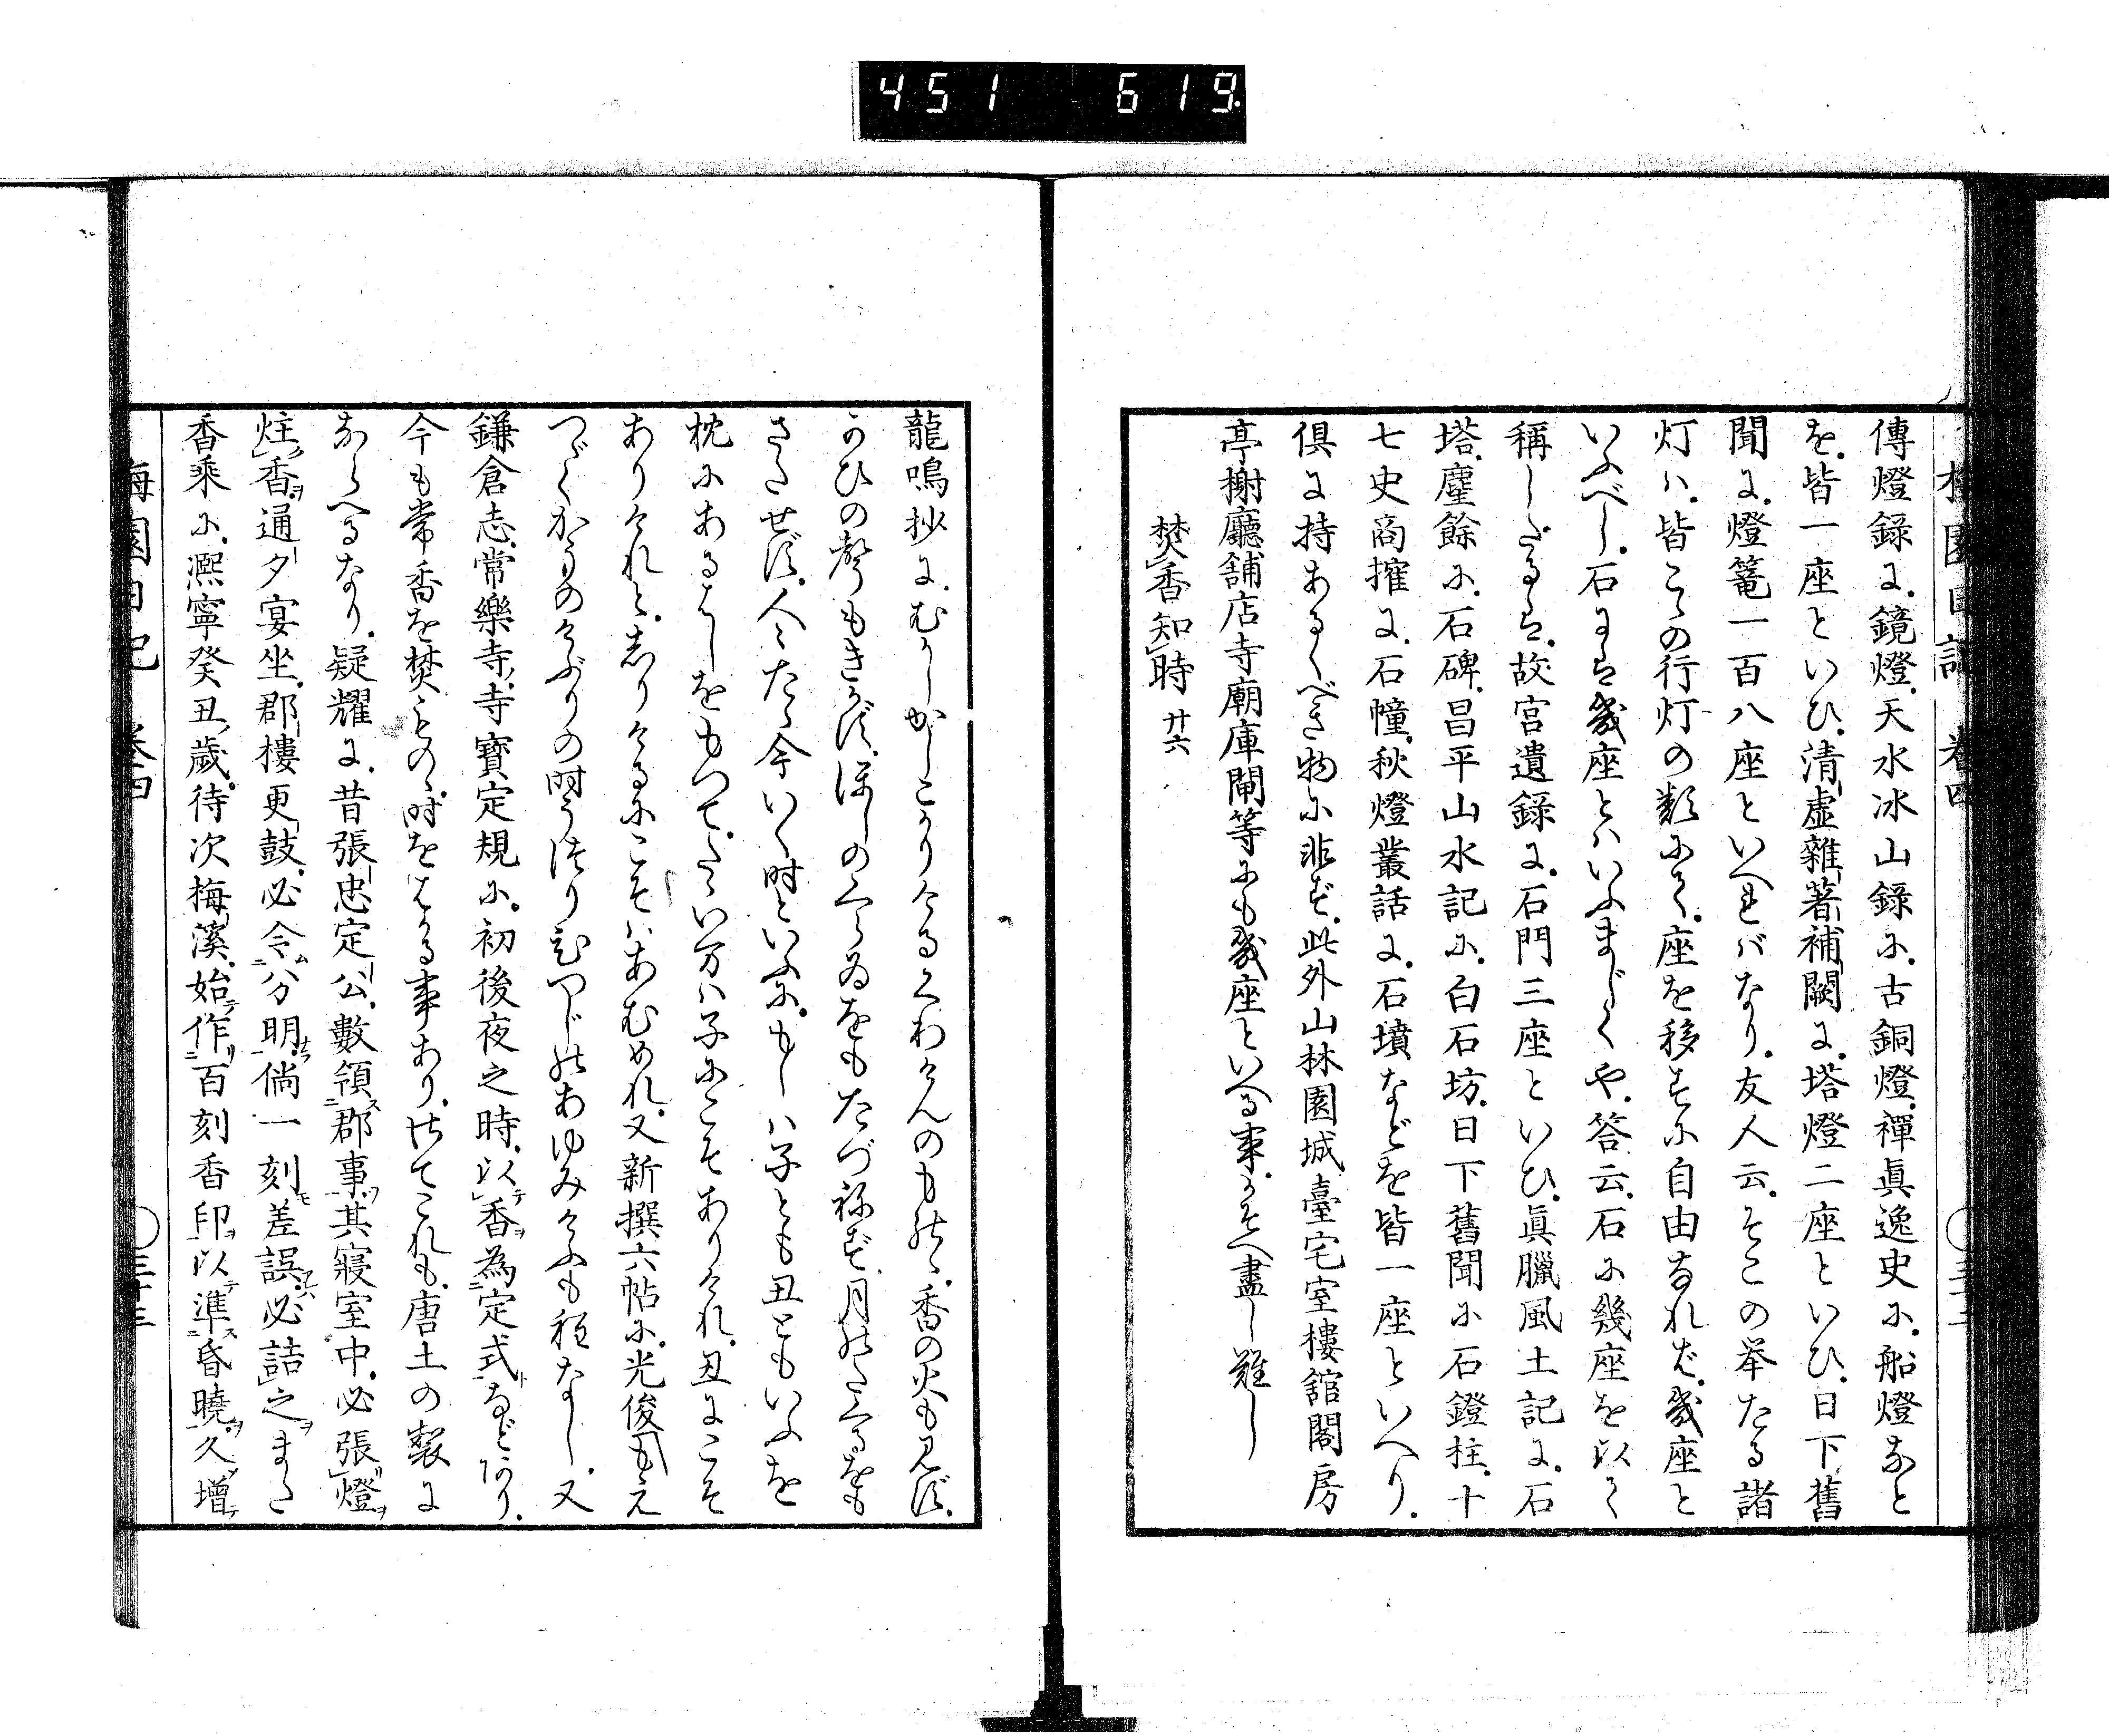 451 619
傳燈録に、鏡燈、天水冰山録に、古銅燈、禪眞逸史に、船燈などを、
を、皆一座といひ、清虚雜著補闕に、塔燈二座といひ、日下舊
聞に、燈篭一百八座といへればなり、友人云、そこの举たる諸
灯は、皆こゝの行灯の類にて、座を移すに自由なれば、幾座と
いふべし、石には幾座とはいふまじくや、答云、石に幾座を以て
稱したるは、故宮遺録に、石門三座といひ、眞臘風土記に、石
塔、塵餘に、石碑、昌平山水記に、白石坊、日下舊聞に石鐙柱、十
七史商搉に、石幢、秋燈叢話に、石墳などを皆一座といへり、
倶に持あるくべき物に非ず、此外山林園城臺宅室樓舘閣房
亭榭廳舗店寺廟庫閘等にも幾座といへる事、かぞへ盡し難し
焚香知時 廿六
龍鳴抄に、むかしかしこかりける
香の火も見ず、
かひの聲もきかず、ほしのくらゐをもたづねず、月
させず、人々たゞ今いく時といふに、もしは子とも丑ともいふを
枕にあるはしをもつて、
子にこそありけれ、丑にこそ
ありけれと、しりけるにこそはあむめれ、又新撰六帖に、光俊
つゞくかうのけぶりの時うつりひつじのあゆみけふも程なし、又
鎌倉志、常樂寺、寺寶定規に、初後夜之時、以香為定式などあり、
今も常香を焚もの、時をはかる事あり、さてこれも、唐土の製に
ならへるなり、疑耀に、昔張忠定公、數領郡事、其寢室中、必張燈
炷香、通夕宴坐、郡樓更鼓、必令分明、倘一刻差誤、必詰之、また
香乘に、熈寧癸丑歳、待次梅溪、始作百刻香印、以準昏曉、久増
梅園日記 卷四